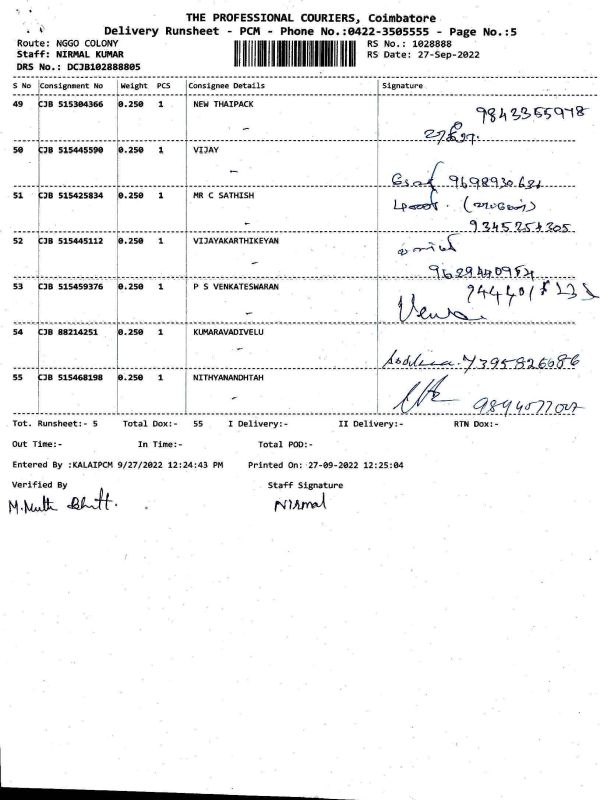 THE PROFESSIONAL COURIERS, Coimbatore
Delivery Runsheet - PCM - Phone No.:0422-3505555 - Page No.:5
Route: NGGO COLONY
RS No.: 1028888
Staff: NIRMAL KUMAR
RS Date: 27-Sep-2022
DRS No.: DCJB102888805
S No Consignment No Weight PCS Consignee Details Signature
49 CJB 515304366 0.250 1 NEW THAIPACK
9843355978
50 CJB 515445590 0.250 1 VIJAY
51 CJB 515425834 0.250 1 MR C SATHISH
9345254305
52 CJB 515445112 0.250 1 VIJAYAKARTHIKEYAN
53 CJB 515459376 0.250 1 P S VENKATESWARAN
54 CJB 88214251 0.250 1 KUMARAVADIVELU
7395826686
55 CJB 515468198 0.250 1 NITHYANANDHTAH
Tot. Runsheet:- 5 Total Dox:- 55 I Delivery:- II Delivery:- RTN Dox:-
Out Time:- In Time:- Total POD:-
Entered By :KALAIPCM 9/27/2022 12:24:43 PM Printed On: 27-09-2022 12:25:04
Verified By Staff Signature
Nirmal